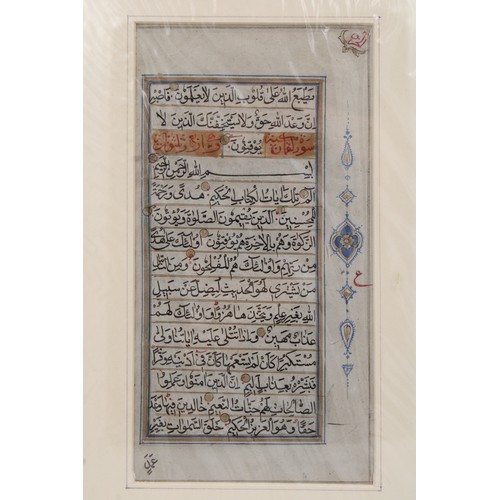 يطبع الله على قلوب الذين لا يعلمون فاصبر
ان وعد الله حق ولا يستخفنك الذين لا
يوقنون
بسم الله الرحمن الرحيم
الم تلك ايات الكتاب الحكيم هدى ورحمة
للمحسنين الذين يقيمون الصلوة ويؤتون
الزكوة وهم بالاخرة هم يوقنون اولئك على هدى
من ربهم واولئك هم المفلحون ومن الناس
من يشترى لهو الحديث ليضل عن سبيل
الله بغير علم ويتخذها هزوا اولئك لهم
عذاب مهين واذا تتلى عليه اياتنا ولى
مستكبرا كان لم يسمعها كان فى اذنيه وقرا
فبشره بعذاب اليم ان الذين امنوا وعملوا
الصالحات لهم جنات النعيم خالدين فيها وعد
حقا وهو العزيز الحكيم خلق السموات بغير
عمد
ع